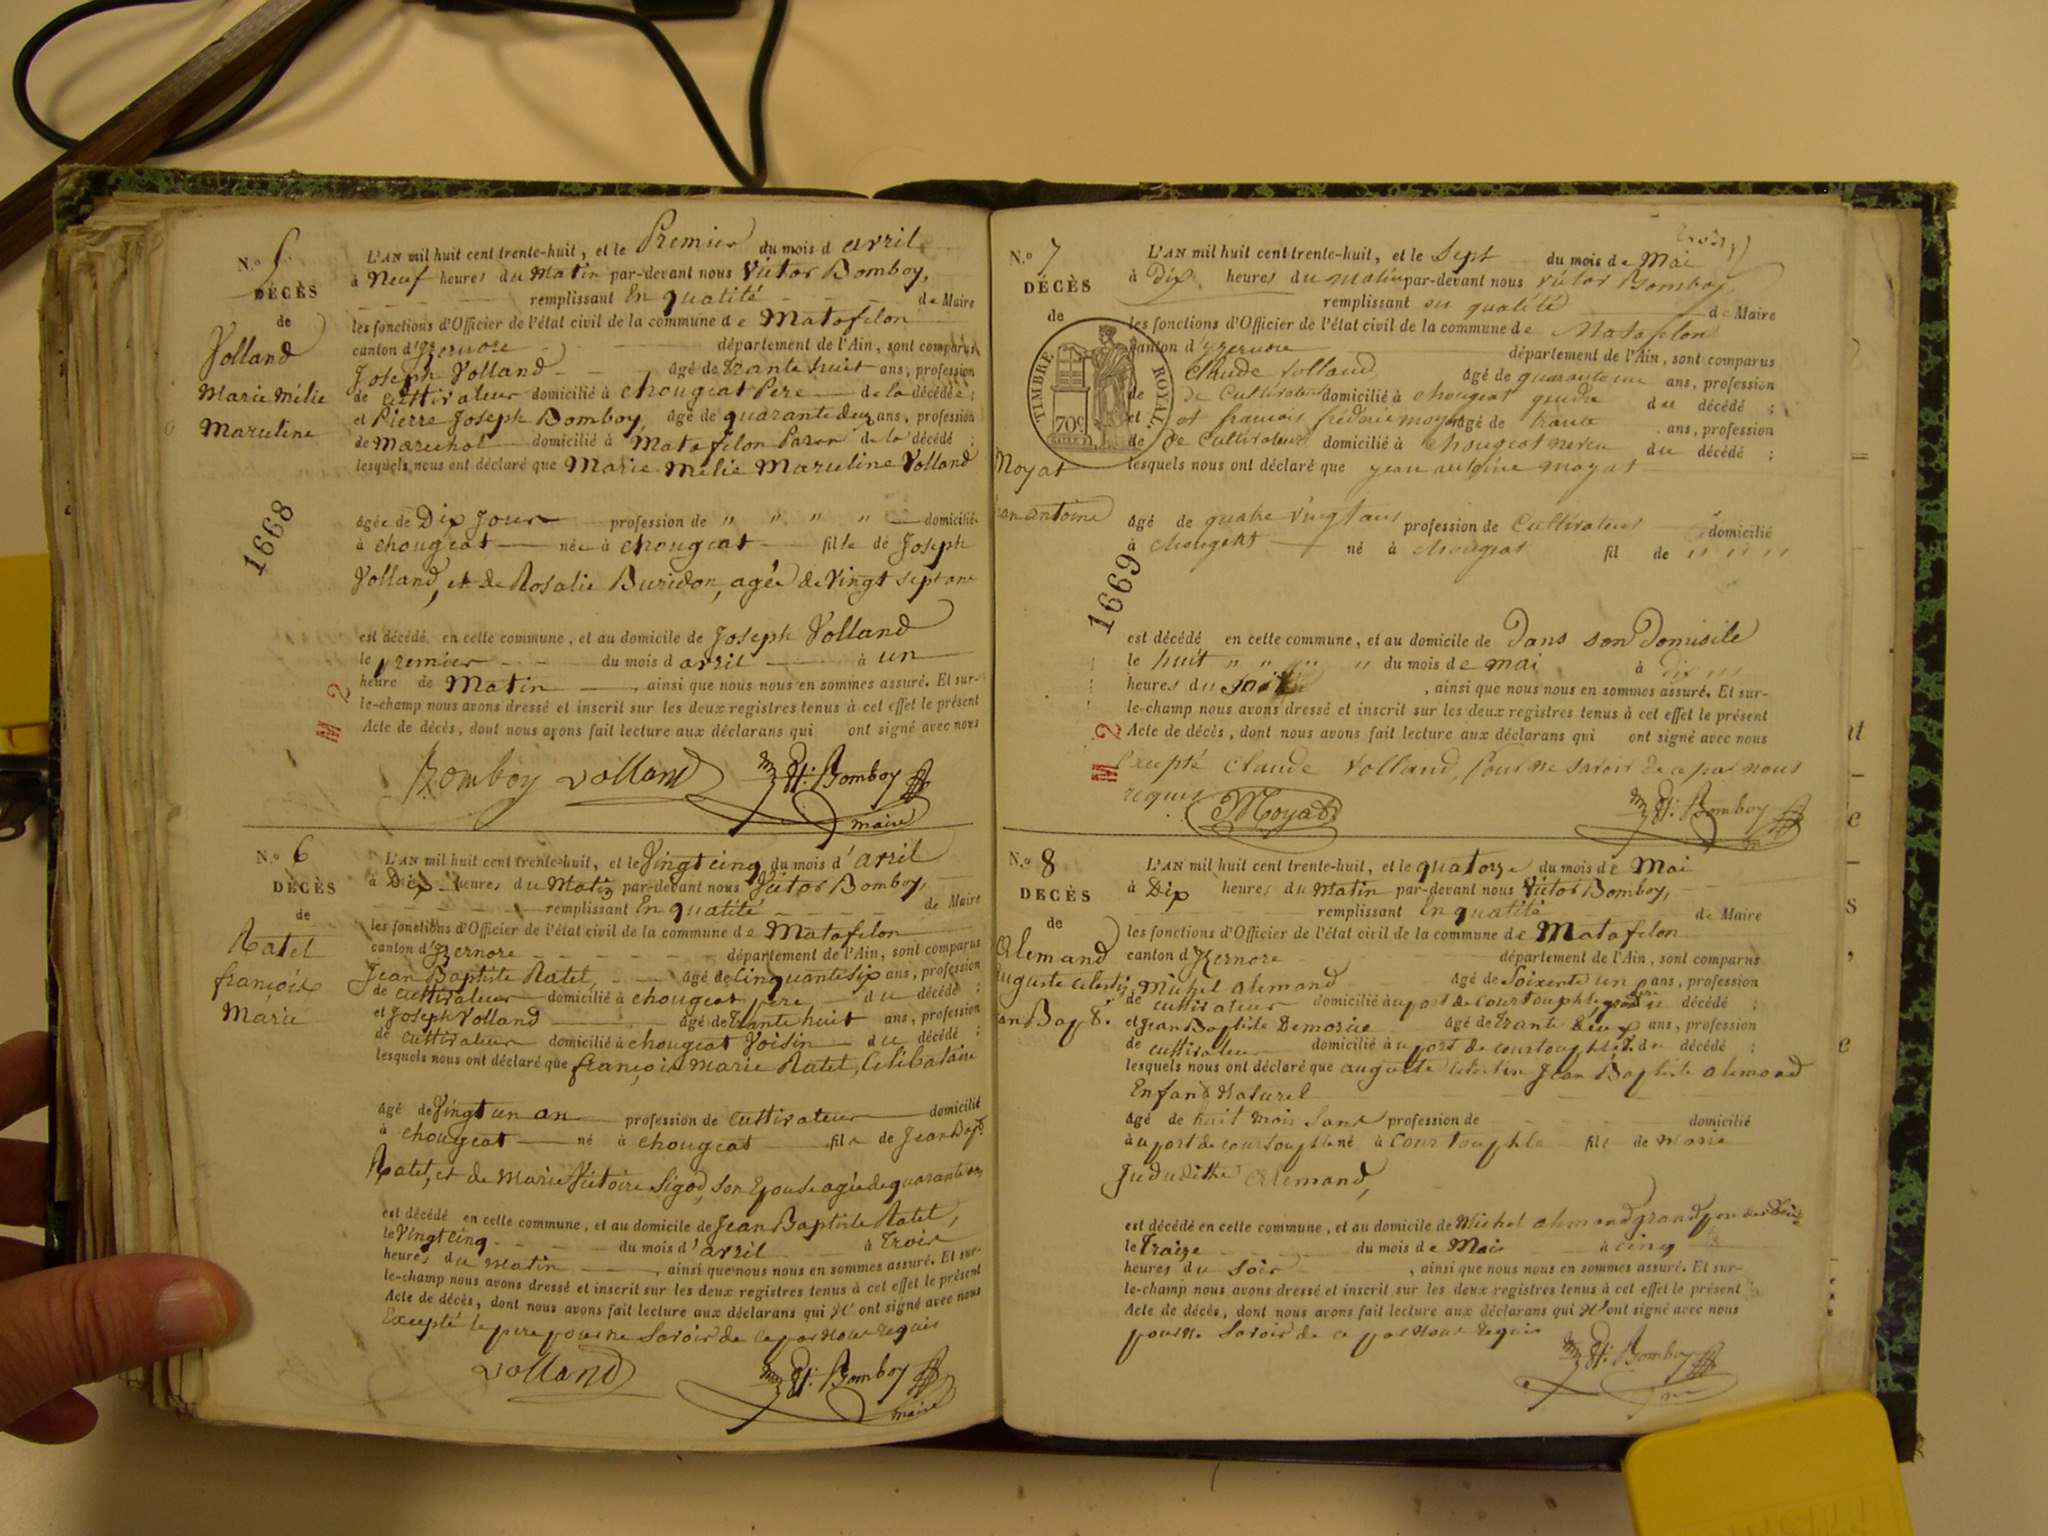 N.º 5.
DÉCÈS
de
Volland
Marie Mélie
Maruline
1668
M 2
L'AN mil huit cent trente-huit, et le Premier du mois d avril
à Neuf heures du Matin par-devant nous Victor Bomboy,
remplissant En qualité de Maire
les fonctions d'Officier de l'état civil de la commune de Matafelon
canton d'Yzernore département de l'Ain, sont comparus
Joseph Volland âgé de Trante huit ans, profession
de cultivateur domicilié à Chougeat Pere de la décédée ;
et Pierre Joseph Bomboy, âgé de quarante deux ans, profession
de Marechal domicilié à Matafelon Paran de la décédé ;
lesquels nous ont déclaré que Marie Mélie Maruline Volland
âgée de Dix Jour profession de " " " " domicilié
à Chougeat née à Chougeat fille de Joseph
Volland, et de Rosalie Buridon, agée de Vingt sept ans
est décédé en cette commune, et au domicile de Joseph Volland
le premier du mois d avril à un
heure de Matin , ainsi que nous nous en sommes assuré. Et sur-
le-champ nous avons dressé et inscrit sur les deux registres tenus à cet effet le présent
Acte de décès, dont nous avons fait lecture aux déclarans qui ont signé avec nous
Bomboy Volland Vt. Bomboy
maire
N.º 6
DÉCÈS
de
Ratel
françois
Marie
L'AN mil huit cent trente-huit, et le Vingt cinq du mois d' avril
à Dix heures du Matin par-devant nous Victor Bomboy,
remplissant En qualité de Maire
les fonctions d'Officier de l'état civil de la commune de Matafelon
canton d'Yzernore département de l'Ain, sont comparus
Jean Baptiste Ratel, âgé de Cinquante six ans, profession
de cultivateur domicilié à chougeat pere du décédé ;
et Joseph Volland âgé de Trante huit ans, profession
de cultivateur domicilié à chougeat Voisin du décédé ;
lesquels nous ont déclaré que françois Marie Ratel, Célibataire
âgé de Vingt un an profession de cultivateur domicilié
à chougeat né à chougeat fils de Jean Bapt.
Ratel, et de Marie Victoire Sigod, son Epouse agée de quarante
est décédé en cette commune, et au domicile de Jean Baptiste Ratel,
le Vingt cinq du mois d' avril à Trois
heures du matin , ainsi que nous nous en sommes assuré. Et sur-
le-champ nous avons dressé et inscrit sur les deux registres tenus à cet effet le présent
Acte de décès, dont nous avons fait lecture aux déclarans qui N' ont signé avec nous
Excepté le pere pour ne Savoir de ce par nous requis
Volland Vt. Bomboy
maire
N.º 7
DÉCÈS
de
TIMBRE ROYAL
70c
Moyat
an antoine
1669
M 2
L'AN mil huit cent trente-huit, et le Sept du mois de Mai
à Dix heures du matin par-devant nous Victor Bomboy,
remplissant en qualité de Maire
les fonctions d'Officier de l'état civil de la commune de Matafelon
canton d'yzernore département de l'Ain, sont comparus
Claude Volland âgé de quarante un ans, profession
de de Cultivateur domicilié à Chougeat gendre du décédé ;
et et francois frédéric moyat âgé de trante ans, profession
de de Cultivateur domicilié à Chougeat neveu du décédé ;
lesquels nous ont déclaré que jean antoine moyat
âgé de quatre Vingt ans profession de Cultivateur domicilié
à chougeat né à chougeat fil de " " " "
est décédé en cette commune, et au domicile de Dans son Domisile
le huit " " " " du mois de mai à dix
heures du soir , ainsi que nous nous en sommes assuré. Et sur-
le-champ nous avons dressé et inscrit sur les deux registres tenus à cet effet le présent
Acte de décès, dont nous avons fait lecture aux déclarans qui ont signé avec nous
Excepté Claude Volland, Pour ne savoir de ce par nous
requis Moyat Vt. Bomboy
N.º 8
DÉCÈS
de
Alemand
auguste celestin
an Bapt.
L'AN mil huit cent trente-huit, et le quatorze du mois de Mai
à Dix heures du Matin par-devant nous Victor Bomboy,
remplissant En qualité de Maire
les fonctions d'Officier de l'état civil de la commune de Matafelon
canton d Yzernore département de l'Ain, sont comparus
Michel alemand âgé de Soixente un ans, profession
de cultivateur domicilié à uport de Courtouphle, grand du décédé ;
et Jean Baptiste Demorice âgé de Trante deux ans, profession
de cultivateur domicilié à uport de courtouphle, du décédé ;
lesquels nous ont déclaré que auguste celestin Jean Baptiste alemand
Enfand Naturel
âgé de huit mois Sans profession de domicilié
à uport de courtouphle né à Courtouphle fils de Marie
Jududithe Alemand,
est décédé en cette commune, et au domicile de Michel alemand grand pere du
le Traize du mois de Mai à cinq
heures du Soir , ainsi que nous nous en sommes assuré. Et sur-
le-champ nous avons dressé et inscrit sur les deux registres tenus à cet effet le présent
Acte de décès, dont nous avons fait lecture aux déclarans qui N'ont signé avec nous
pour ne Savoir de ce par Nous requis
Vt. Bomboy